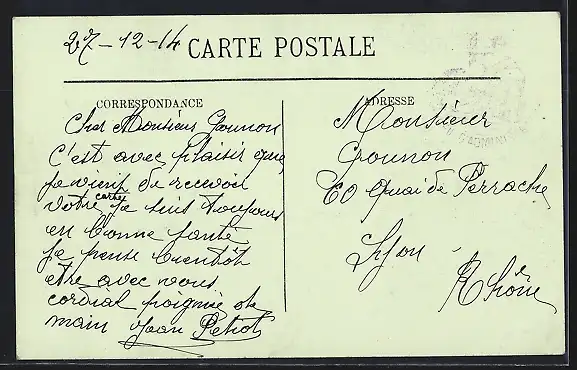 27-12-14
CARTE POSTALE
CORRESPONDANCE
ADRESSE
Cher Monsieur Gounon
C'est avec plaisir que
je vient de recevoir
votre carte je suis toujours
en bonne santé
je pense bientôt
etre avec vous
cordial poignée de
main Jean Petiot
Monsieur
Gounon
60 Quai de Perrache
Lyon -
Rhône